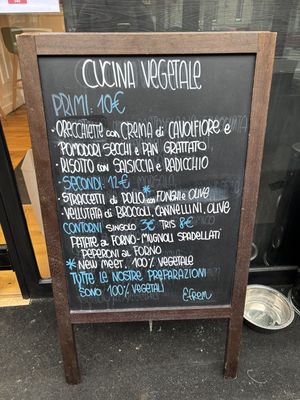 CUCINA VEGETALE
PRIMI: 10€
• ORECCHIETTE con CREMA di CAVOLFIORE e
POMODORI SECCHI e PAN GRATTATO
• RISOTTO con SALSICCIA e RADICCHIO
• SECONDI: 12€
• STRACCETTI di POLLO* con FUNGHI e OLIVE
• VELLUTATA di BROCCOLI, CANNELLINI, OLIVE
CONTORNI SINGOLO 3€ TRIS 8€
PATATE al FORNO - MUGNOLI SPADELLATI
PEPERONI al FORNO
* NEW MEET 100% VEGETALE
TUTTE LE NOSTRE PREPARAZIONI
SONO 100% VEGETALI